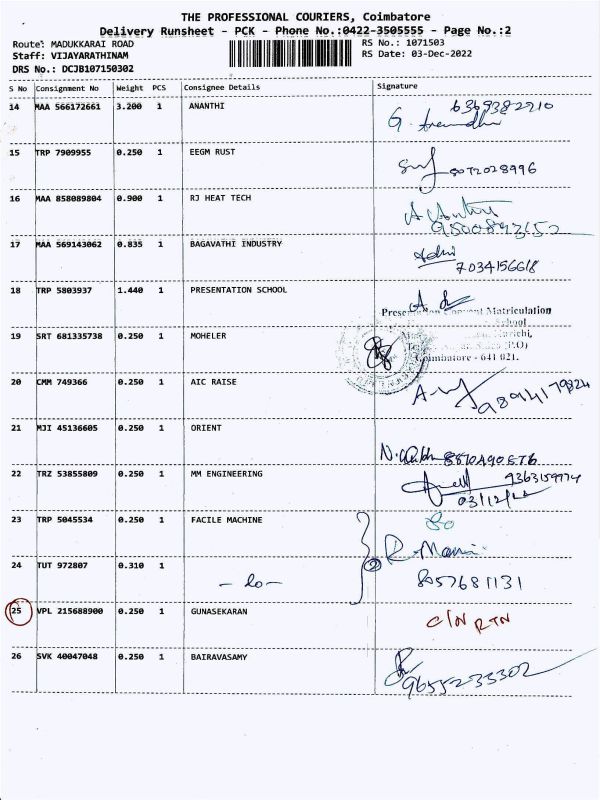 THE PROFESSIONAL COURIERS, Coimbatore
Delivery Runsheet - PCK - Phone No.:0422-3505555 - Page No.:2
Route: MADUKKARAI ROAD RS No.: 1071503
Staff: VIJAYARATHINAM RS Date: 03-Dec-2022
DRS No.: DCJB107150302
S No Consignment No Weight PCS Consignee Details Signature
14 MAA 566172661 3.200 1 ANANTHI 6369382910
15 TRP 7909955 0.250 1 EEGM RUST 8072028996
16 MAA 858089804 0.900 1 RJ HEAT TECH
17 MAA 569143062 0.835 1 BAGAVATHI INDUSTRY
7034156618
18 TRP 5803937 1.440 1 PRESENTATION SCHOOL
Presentation Convent Matriculation
School
19 SRT 681335738 0.250 1 MOHELER
Coimbatore - 641 021.
20 CMM 749366 0.250 1 AIC RAISE
21 MJI 45136605 0.250 1 ORIENT
22 TRZ 53855809 0.250 1 MM ENGINEERING
03/12/22
23 TRP 5045534 0.250 1 FACILE MACHINE
R. Mani
24 TUT 972807 0.310 1 - do - 2
8057681131
25 VPL 215688900 0.250 1 GUNASEKARAN C/N RTN
26 SVK 40047048 0.250 1 BAIRAVASAMY
9655233302